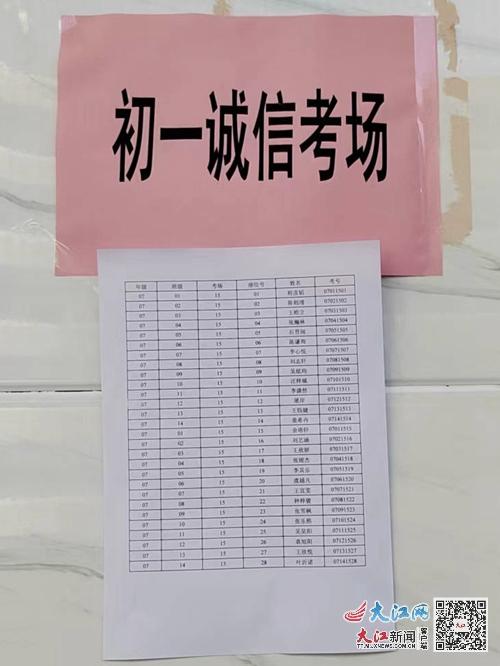 初一诚信考场
年级 班级 考场 座位号 姓名 考号
07 01 15 01 07011501
07 02 15 02 07021502
07 03 15 03 07031503
07 04 15 04 07041504
07 05 15 05 07051505
07 06 15 06 07061506
07 07 15 07 李心悦 07071507
07 08 15 08 刘志轩 07081508
07 09 15 09 07091509
07 10 15 10 07101510
07 11 15 11 07111511
07 12 15 12 07121512
07 13 15 13 07131513
07 14 15 14 07141514
07 01 15 15 07011515
07 02 15 16 刘艺涵 07021516
07 03 15 17 王欣妍 07031517
07 04 15 18 07041518
07 05 15 19 李其乐 07051519
07 06 15 20 07061520
07 07 15 21 王宜雯 07071521
07 08 15 22 07081522
07 09 15 23 张雪枫 07091523
07 10 15 24 张乐熙 07101524
07 11 15 25 吴呈阳 07111525
07 12 15 26 袁旭阳 07121526
07 13 15 27 王欣悦 07131527
07 14 15 28 叶沂诺 07141528
大江网
大江新闻 客户端